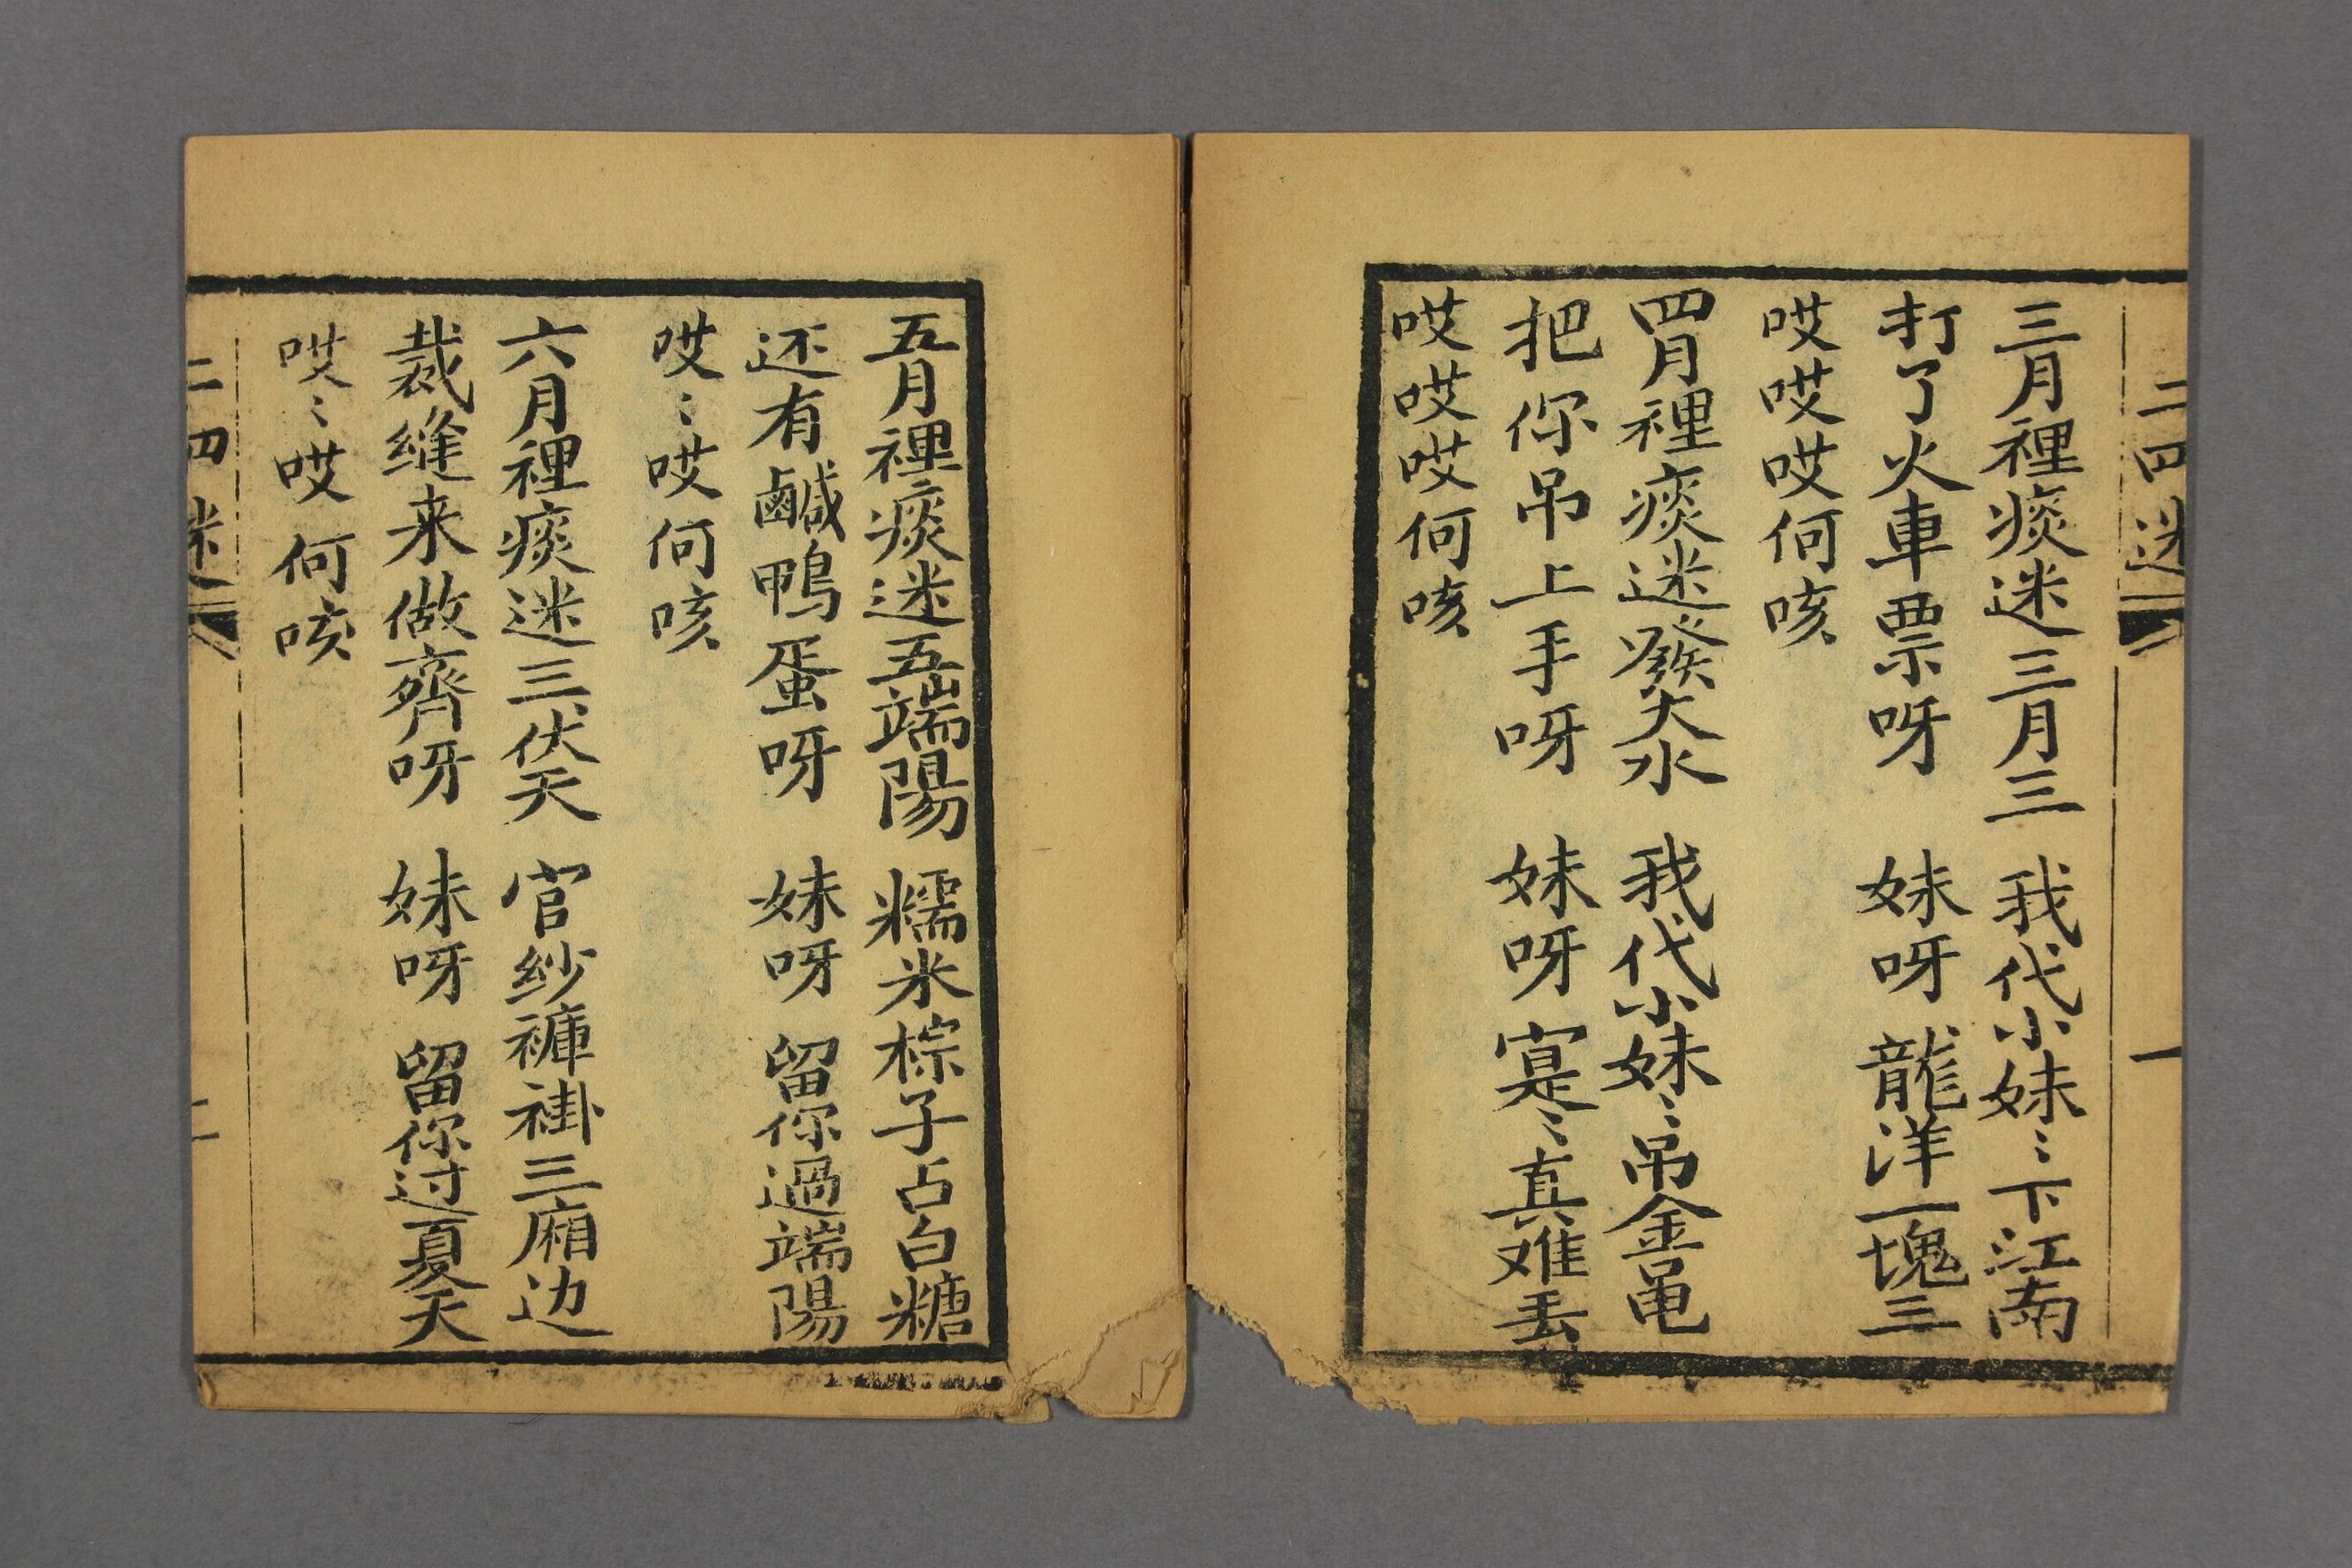 二四迷 一
三月裡痰迷三月三 我代小妹〻下江南
打了火車票呀 妹呀龍洋一塊三
哎哎哎何咳
四月裡痰迷發大水 我代小妹〻吊金黾
把你吊上手呀 妹呀寔〻真难丢
哎哎哎何咳
五月裡痰迷五端陽 糯米棕子占白糖
还有鹹鴨蛋呀 妹呀留你過端陽
哎〻哎何咳
六月裡痰迷三伏天 官纱褲褂三廂边
裁缝来做齊呀 妹呀留你过夏天
哎〻哎何咳
二四迷 二